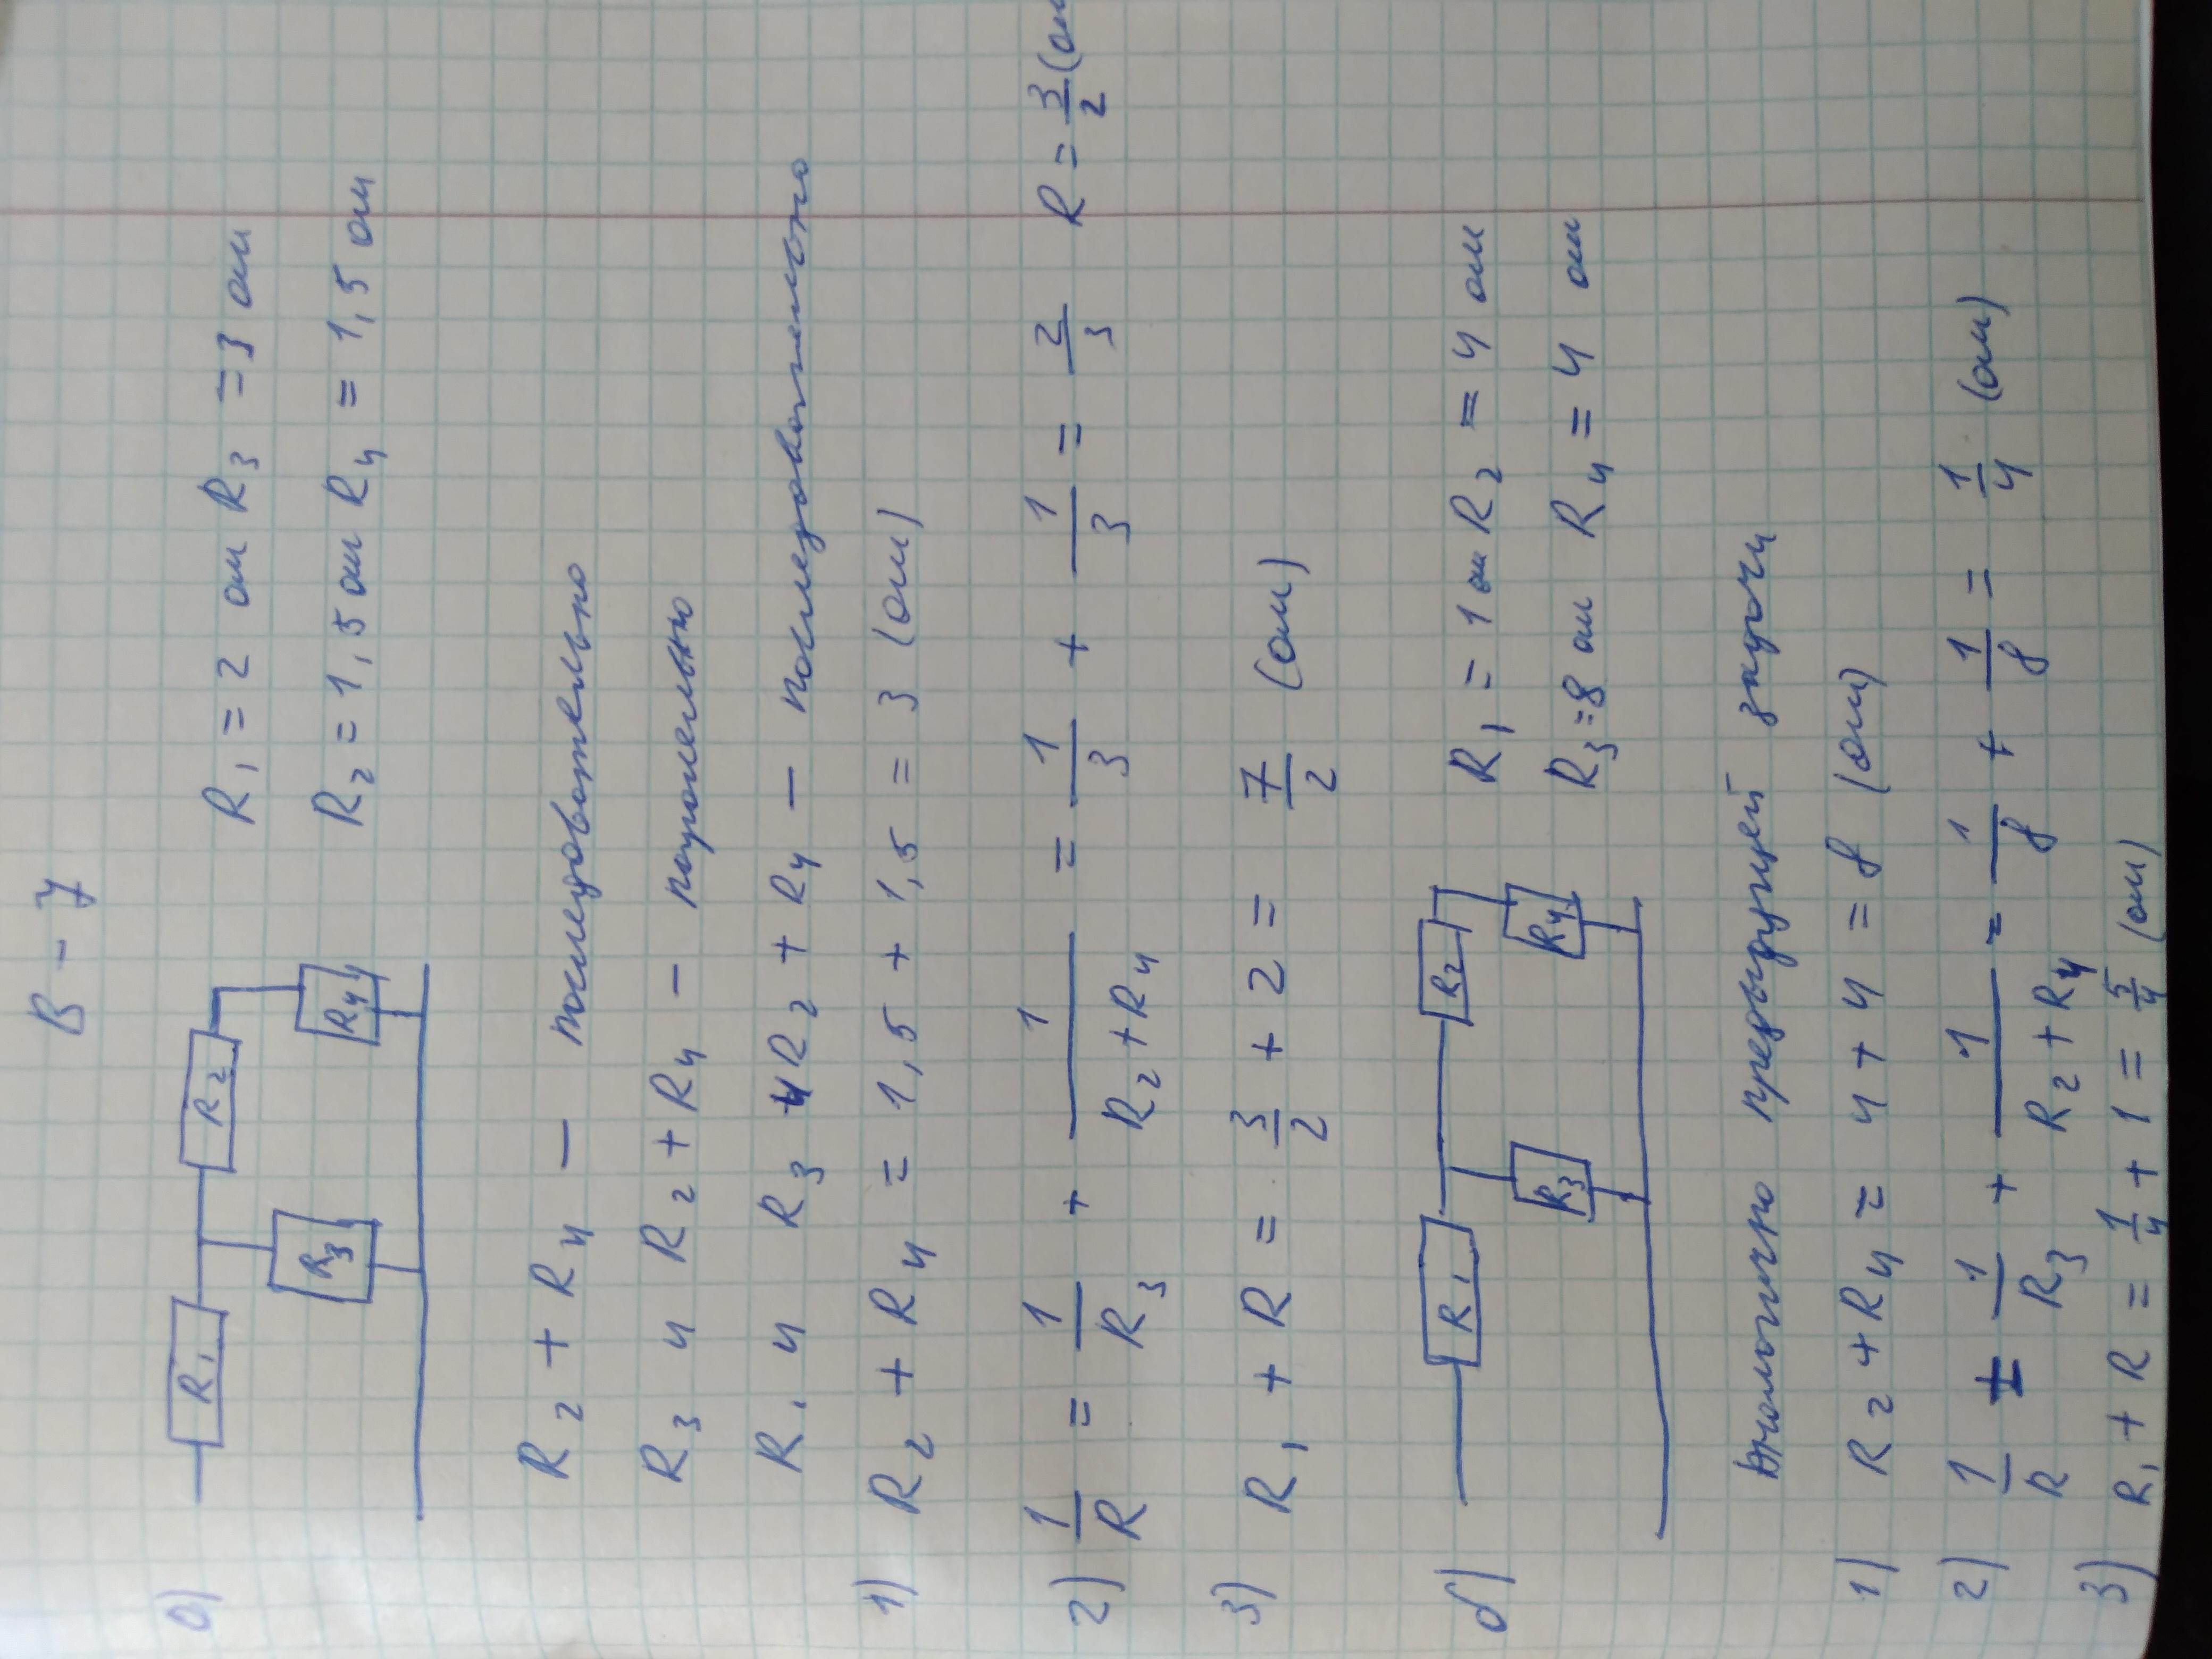 В - 7
а)
R₁ R₂
R₃ R₄
R₁ = 2 ом R₃ = 3 ом
R₂ = 1,5 ом R₄ = 1,5 ом
R₂ + R₄ — последовательно
R₃ и R₂ + R₄ — паралельно
R₁ и R₃ и R₂ + R₄ — последовательно
1) R₂ + R₄ = 1,5 + 1,5 = 3 (ом)
2) 1/R = 1/R₃ + 1/(R₂+R₄) = 1/3 + 1/3 = 2/3 R = 3/2 (ом
3) R₁ + R = 3/2 + 2 = 7/2 (ом)
б)
R₁ R₂
R₃ R₄
R₁ = 1 ом R₂ = 4 ом
R₃ = 8 ом R₄ = 4 ом
Аналогично предыдущей задачи
1) R₂ + R₄ = 4 + 4 = 8 (ом)
2) 1/R = 1/R₃ + 1/(R₂+R₄) = 1/8 + 1/8 = 1/4 (ом)
3) R₁ + R = 1/4 + 1 = 5/4 (ом)